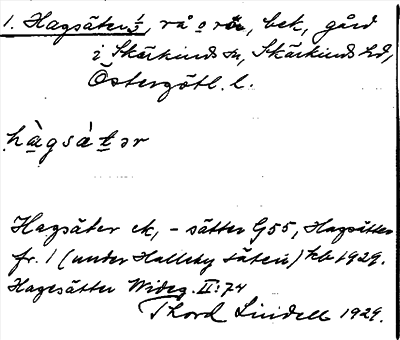 1. Hagsäter 1/3, rå o rör, bek, gård
i Skärkinds sn, Skärkinds hd,
Östergötl. l.
hàgsàtər
Hagsäter ek, -sätter G55, Hagsätter
fr. 1 (under Halleby säteri) hb 1929.
Hagesätter Wideg. II:74
Thord Lindell 1929.